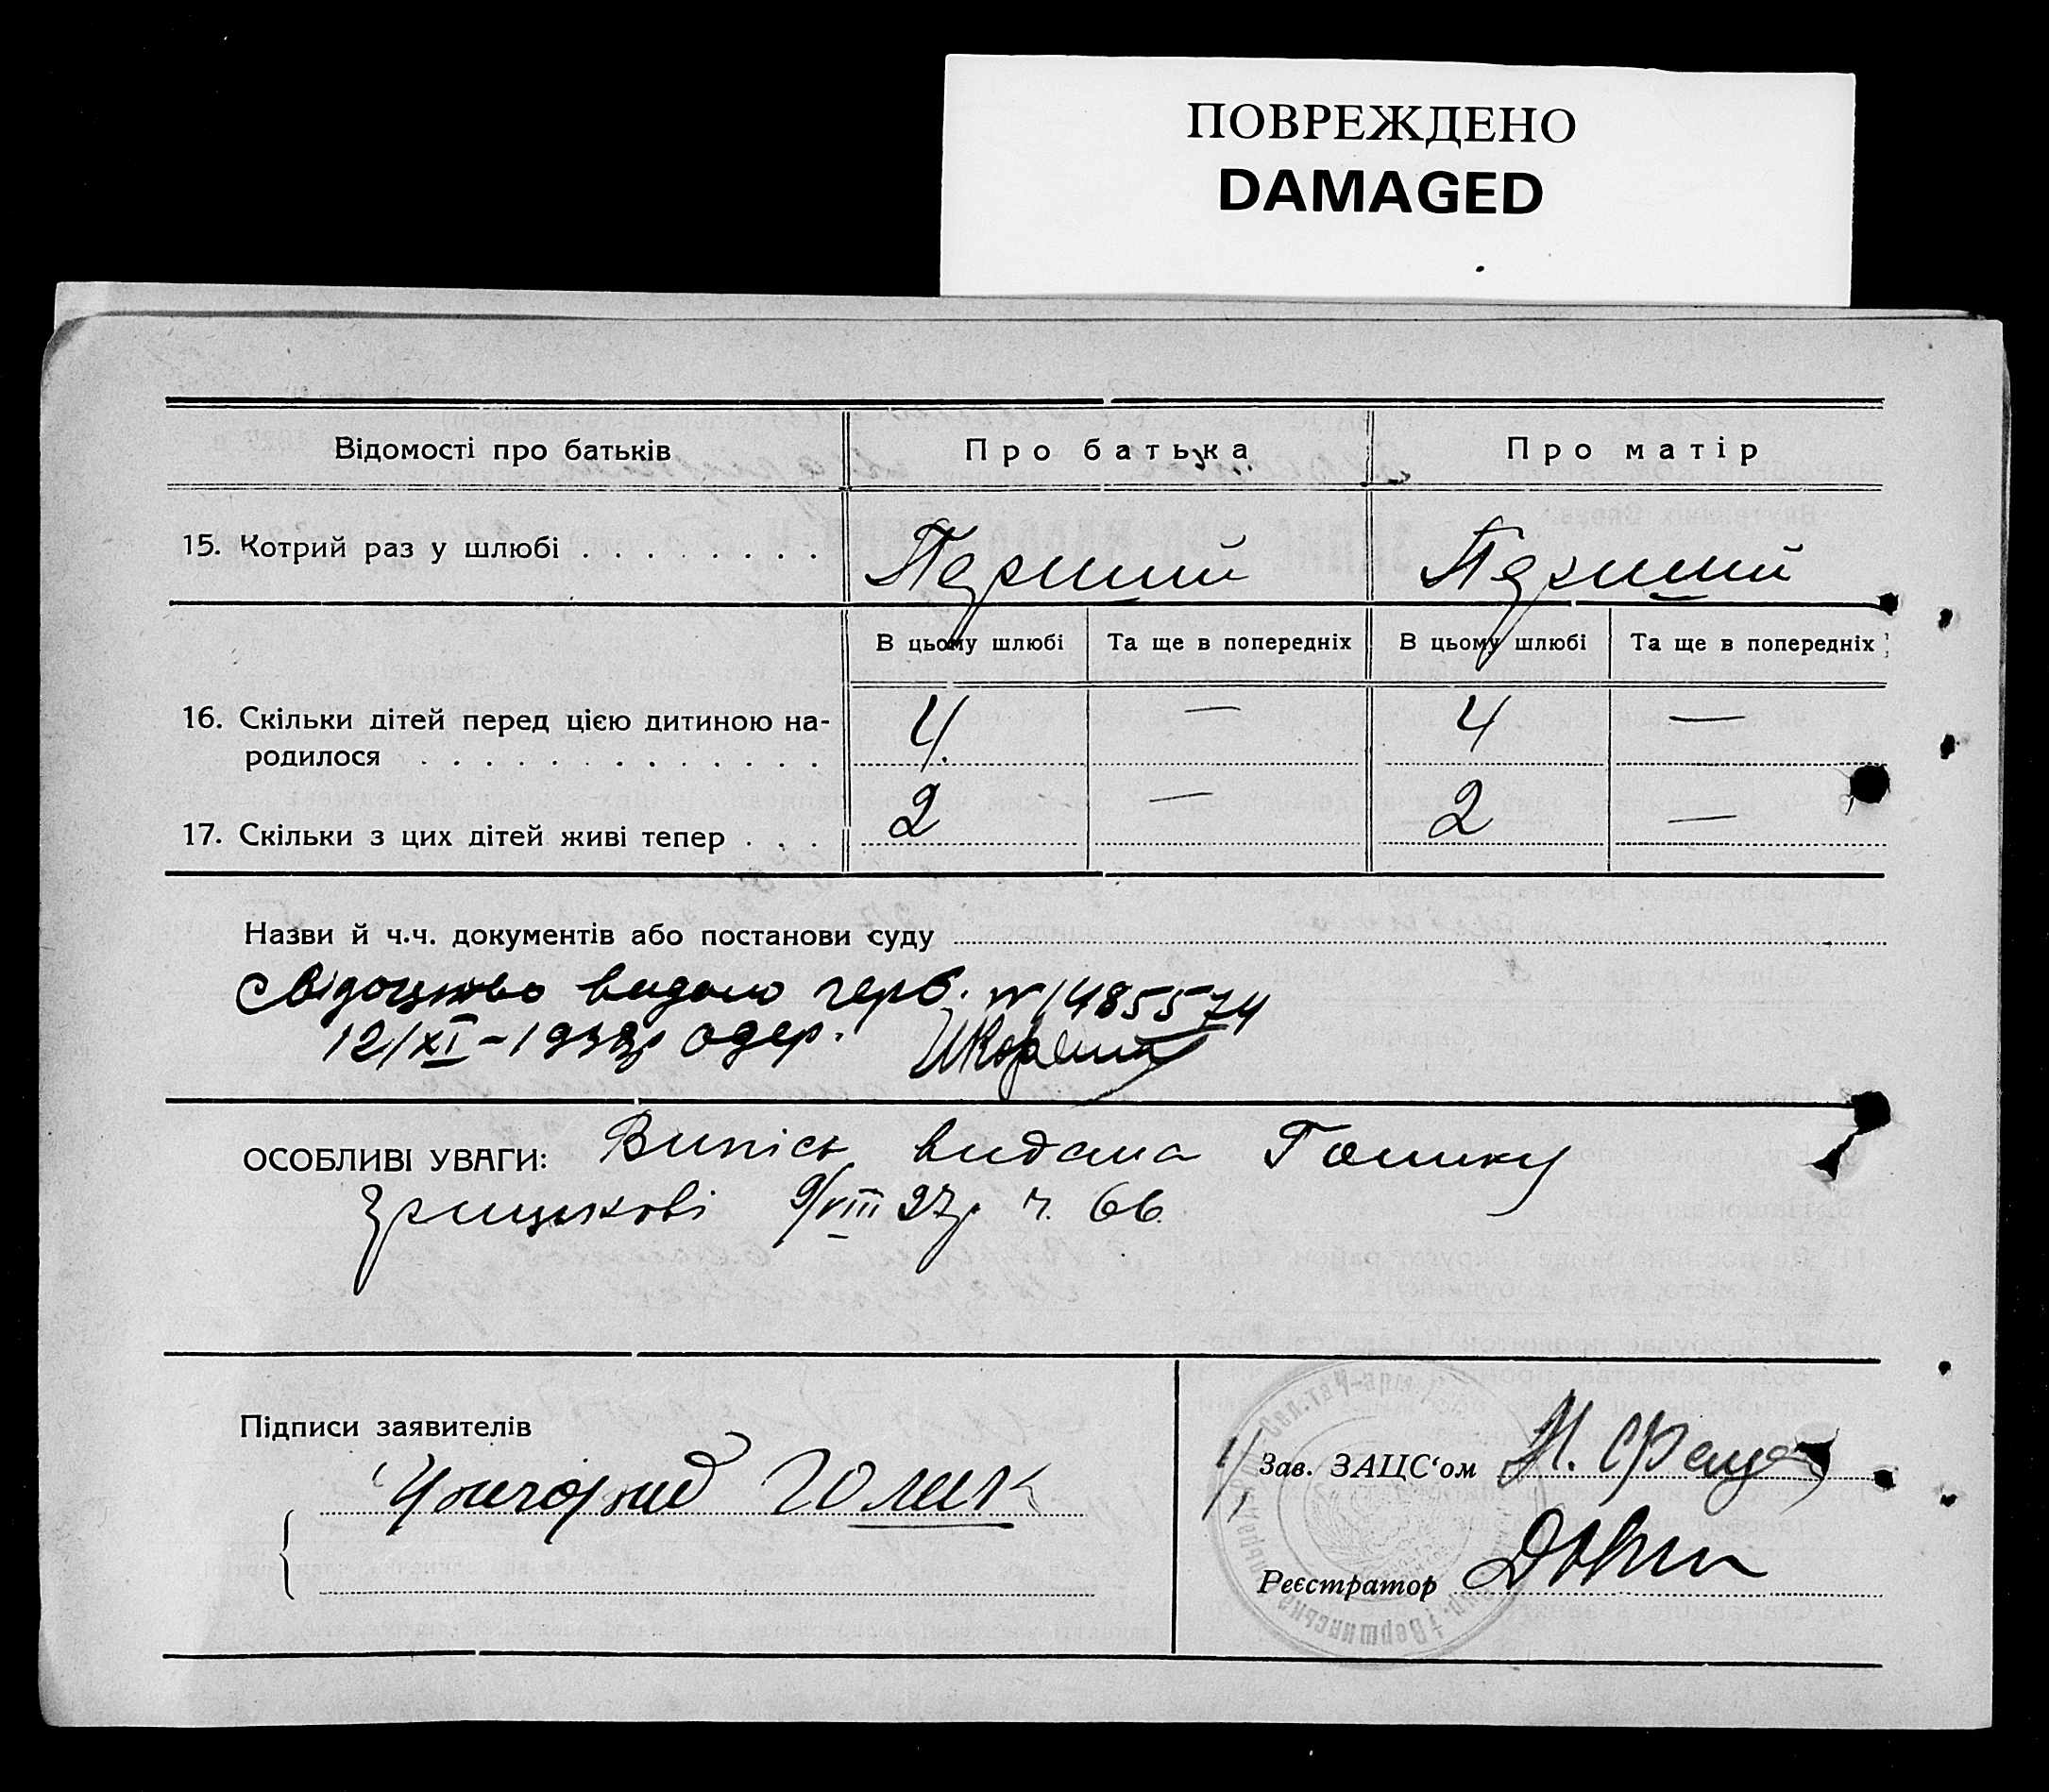 ПОВРЕЖДЕНО
DAMAGED
Відомості про батьків
Про батька
Про матір
15. Котрий раз у шлюбі . . . . . . . .
Перший
Перший
В цьому шлюбі
Та ще в попередніх
В цьому шлюбі
Та ще в попередніх
16. Скільки дітей перед цією дитиною на-
родилося . . . . . . . . . . . . .
4
—
4
—
17. Скільки з цих дітей живі тепер . . .
2
—
2
—
Назви й ч.ч. документів або постанови суду
Свідоцтво видано герб. № 1485574
12/XI - одер.
ОСОБЛИВІ УВАГИ: Випісь видана Голику
Грицькові 9/VIII 27р ч. 66.
Підписи заявителів
Голик
Зав. ЗАЦС‘ом
Реєстратор